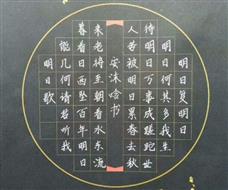 明日复明日
明日何其多我生
待明日万事成蹉跎世
人苦被明日累春去秋
安沐晗书
来老将至朝看水东流
暮看日西坠百年明日
能几何请君听我
明日歌